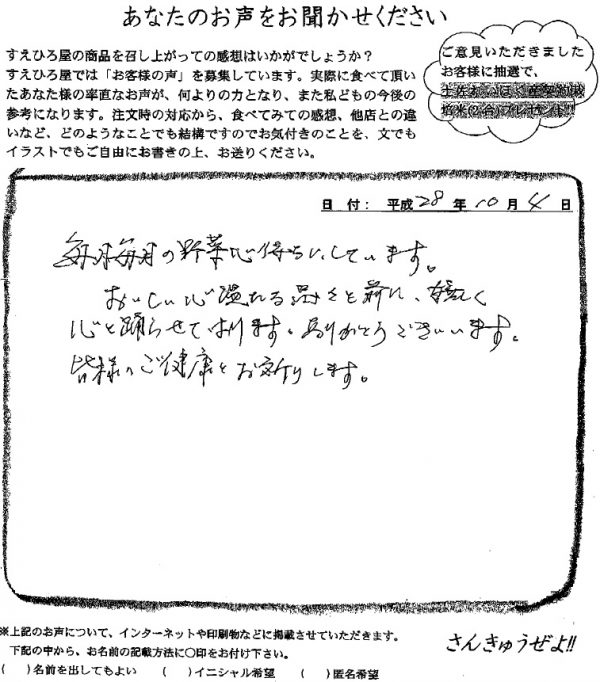 あなたのお声をお聞かせください
すえひろ屋の商品を召し上がっての感想はいかがでしょうか？
すえひろ屋では「お客様の声」を募集しています。実際に食べて頂い
たあなた様の率直なお声が、何よりの力となり、また私どもの今後の
参考になります。注文時の対応から、食べてみての感想、他店との違
いなど、どのようなことでも結構ですのでお気付きのことを、文でも
イラストでもご自由にお書きの上、お送りください。
ご意見いただきました
お客様に抽選で、
日 付： 平成 28 年 10 月 4 日
毎月毎月の野菜心待ちにしています。
おいしい心溢れる品々と、嬉しく
心を踊らせております。ありがとうございます。
皆様のご健康をお祈りします。
※上記のお声について、インターネットや印刷物などに掲載させていただきます。
下記の中から、お名前の記載方法に○印をお付け下さい。
( )名前を出してもよい ( )イニシャル希望 ( )匿名希望
さんきゅうぜよ!!